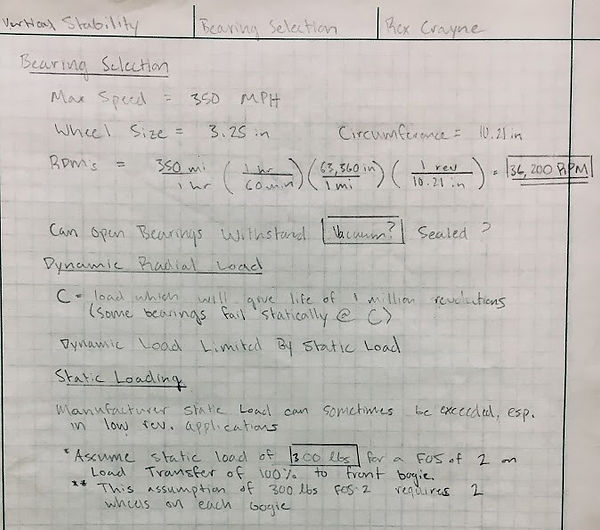 Vertical Stability | Bearing Selection | Rex Crayne
Bearing Selection
Max Speed = 350 MPH
Wheel Size = 3.25 in Circumference = 10.21 in
RPM's = 350 mi / 1 hr (1 hr / 60 min) (63,360 in / 1 mi) (1 rev / 10.21 in) = 36,200 RPM
Can Open Bearings Withstand Vacuum? Sealed?
Dynamic Radial Load
C = load which will give life of 1 million revolutions
(some bearings fail statically @ C)
Dynamic Load Limited By Static Load
Static Loading
Manufacturer static Load can sometimes be exceeded, esp.
in low rev. applications
* Assume static load of 300 lbs for a FOS of 2 on
Load Transfer of 100% to front bogie.
** This assumption of 300 lbs FOS 2 requires 2
wheels on each bogie